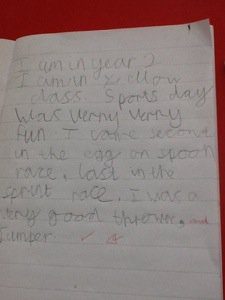 I am in year 2
I am in yellow
class. Sports day
was verry verry
fun. I came second
in the egg on spoon
race, last in the
sprint race. I was a
very good thrower, and
Jumper